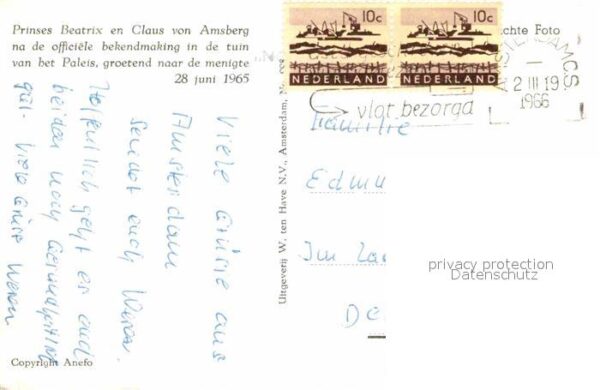 Prinses Beatrix en Claus von Amsberg
na de officiële bekendmaking in de tuin
van het Paleis, groetend naar de menigte
28 juni 1965
Viele Grüße aus
Amsterdam
sendet euch Werner.
Hoffentlich geht es euch
beiden noch gesundheitlich
gut. Viele Grüße Werner
Copyright Anefo
Uitgeverij W. ten Have N.V., Amsterdam,
chte Foto
10c
NEDERLAND
10c
NEDERLAND
2 III 19
1966
vlot bezorgd
Familie
Edmu
Im
De
privacy protection
Datenschutz